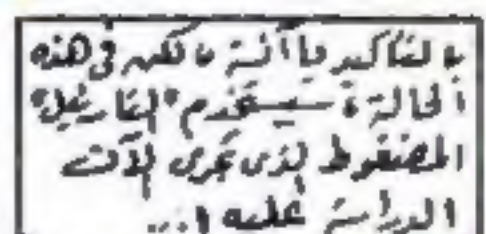 بالتأكيد يا آنسة ، لكن في هذه
الحالة ، سيستخدم "النارنجيل"
المضغوط الذى تجرى الآن
الدراسة عليه !..